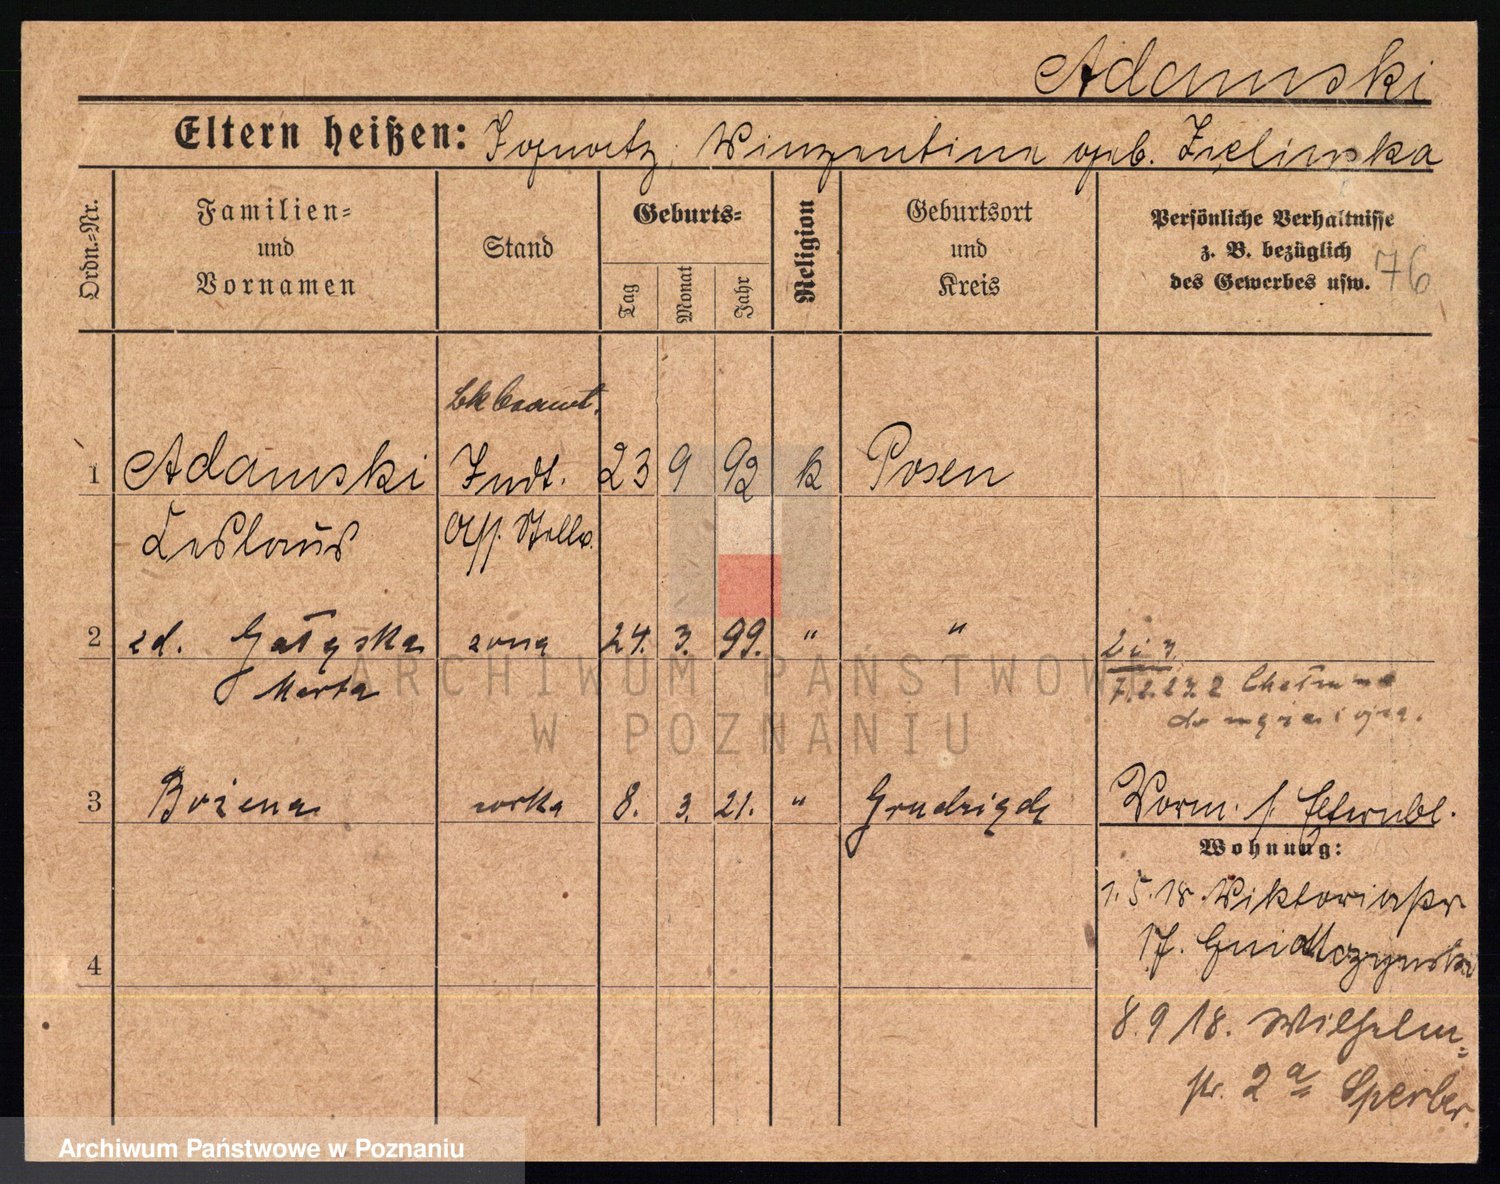 Adamski
Eltern heißen: Ignatz, Winzentina geb. Zielinska
Ordn.=Nr.
Familien= und Vornamen
Stand
Geburts=
Tag
Monat
Jahr
Religion
Geburtsort und Kreis
Persönliche Verhältnisse z. B. bezüglich des Gewerbes usw.
76
1 Adamski 23 9 92 k Posen
Leslaus Stellv.
2 zd. Gałęska żona 24. 3. 99. " "
Marta
2 i 3
Chełmna
3 Bożena córka 8. 3. 21. " Grudziądz
Vorm. s. Elternbl.
Wohnung:
1.5.18. Viktoriastr
17.
4
8.9 18. Wilhelm=
str. 2a Sperber.
ARCHIWUM PAŃSTWOWE
W POZNANIU
Archiwum Państwowe w Poznaniu